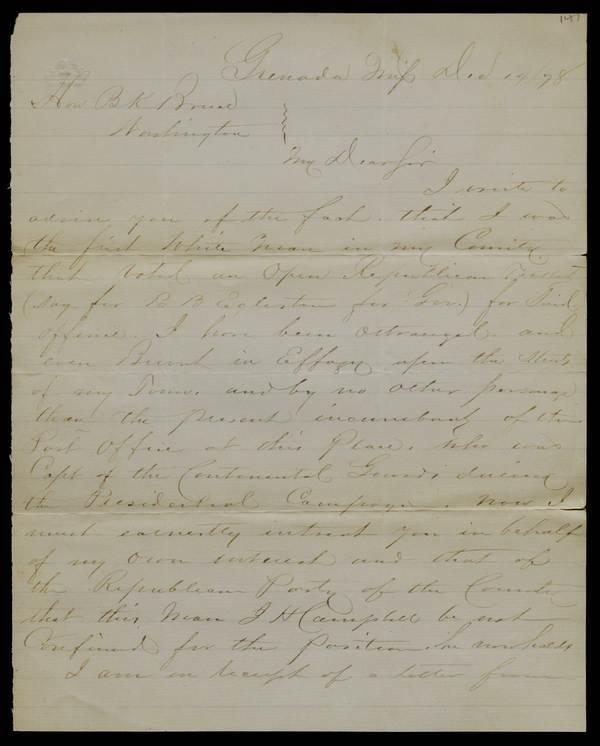 Grenada Miss Dec 14/78
Hon B K Bruce
Washington
My Dear Sir
I write to
advise you of the fact. that I was
the first White man in my County
that voted an Open Republican Ticket
(Say for B B Egleston for Gov.) for Said
offense. I have been ostracized. and
even Burnt in Effagy upon the Streets
of my Town. and by no other personage
than the present incumbent of the
Post Office at this Place. who was
Capt of the Continental Guards during
the Presidential Campaign. now I
most earnestly intreat you in behalf
of my own interest and that of
the Republican Party of the County
that this man J H Campbell be not
Confirmed for the position he now holds
I am in receipt of a letter from